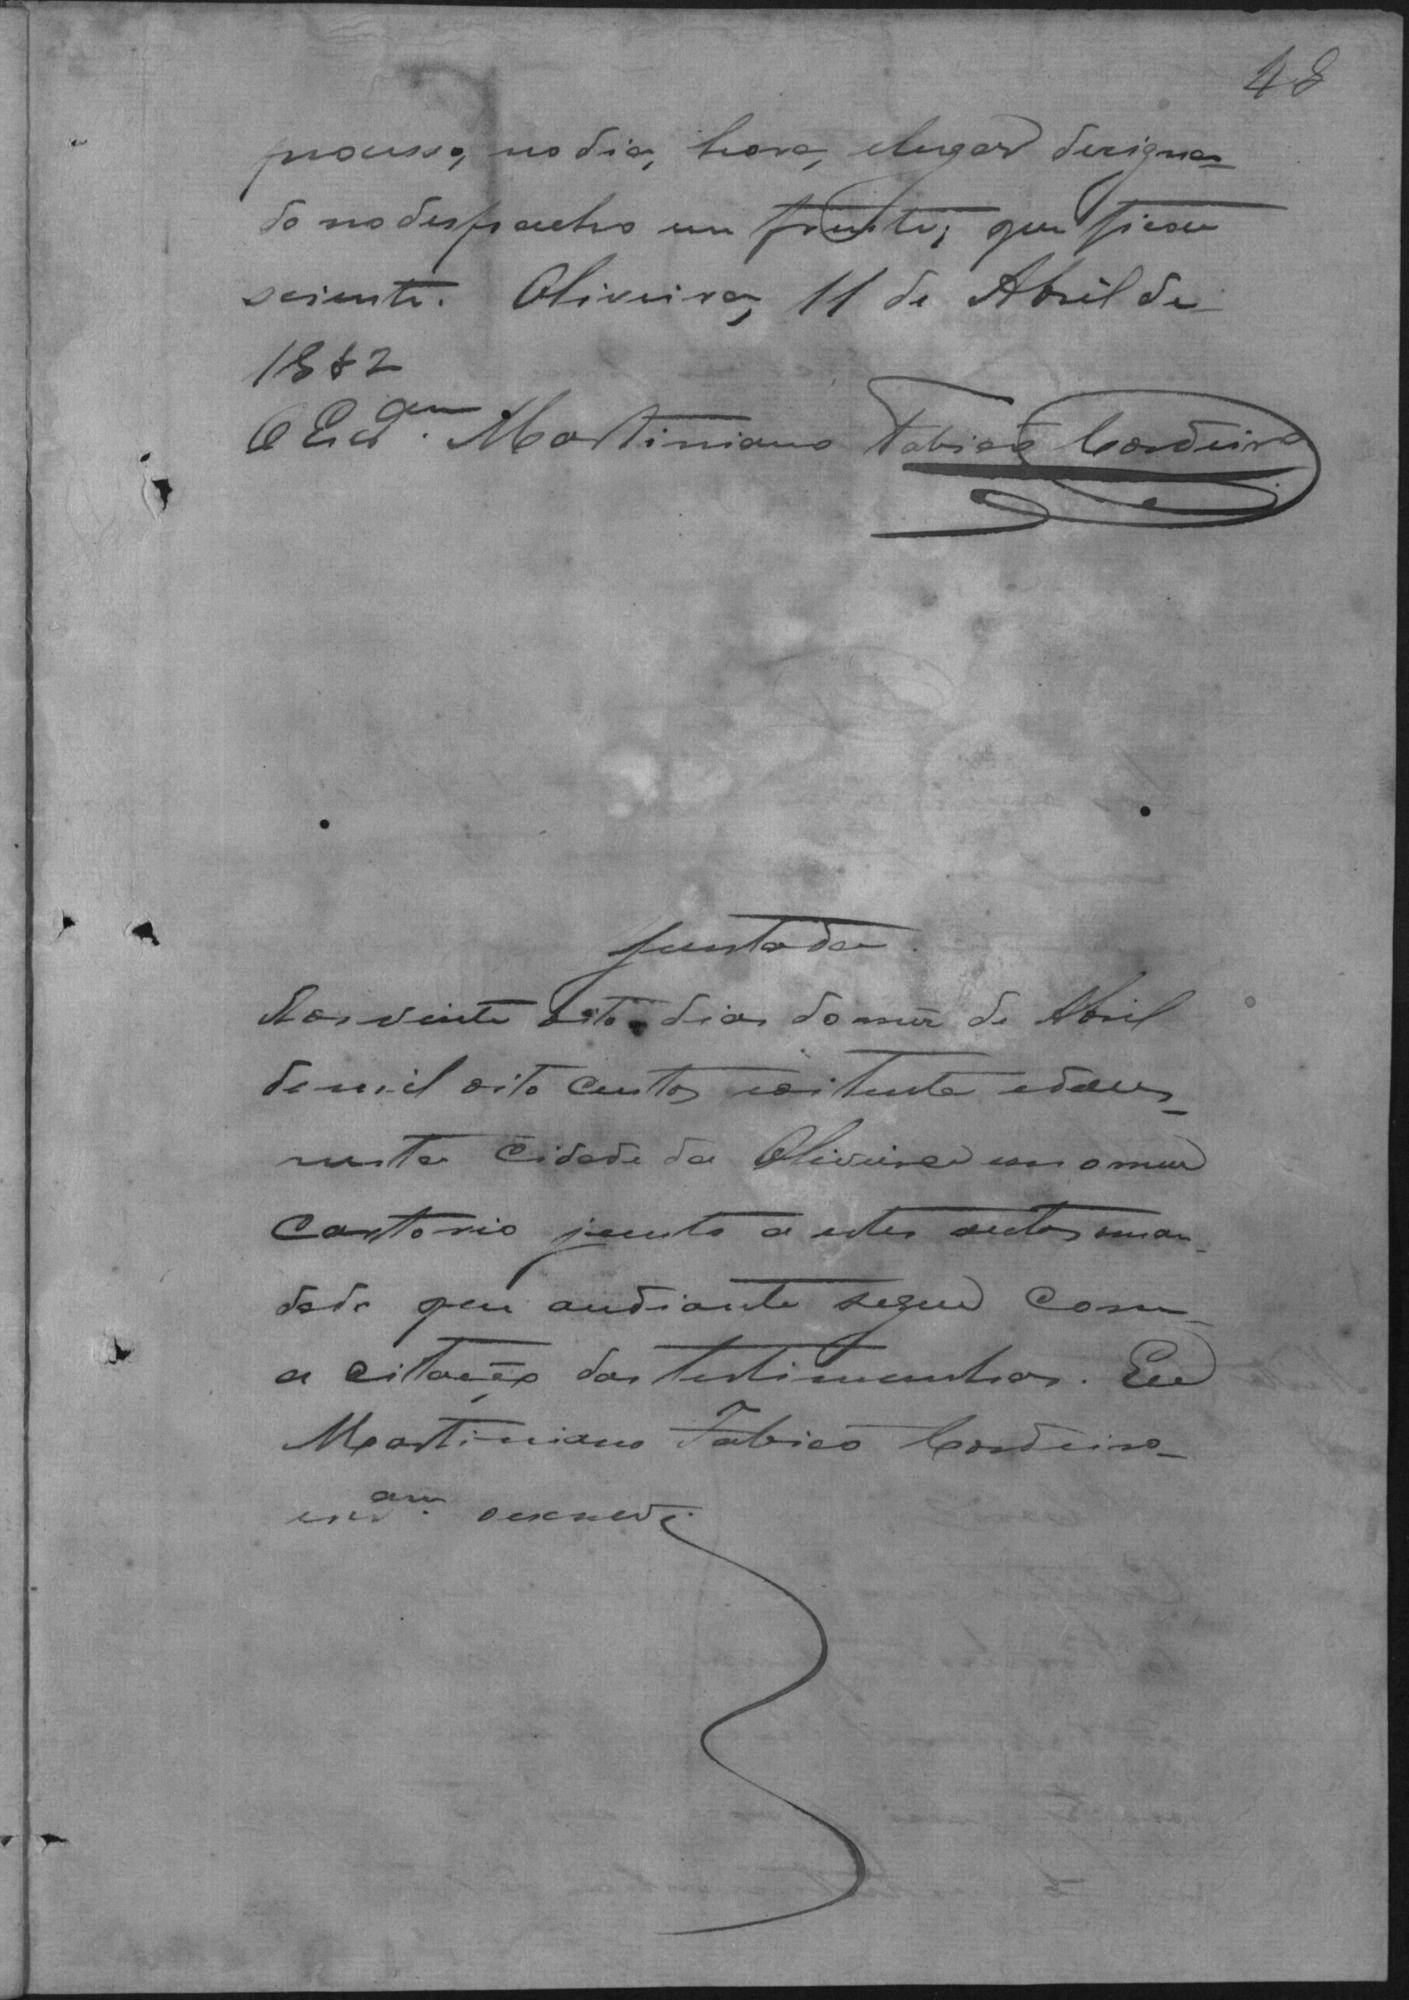 48
processo, no dia, hora, elugar designa-
do no despacho em frente; que ficou
sciente. Oliveira, 11 de Abril de
1882
O Escr.am Martiniano Fabião Cordeiro
Juntada.
Aos vinte oito dias do mez de Abril
de mil oito centos eoitenta edous,
nesta Cidade da Oliveira em o meu
Cartorio junto a estes autos man-
dado que andiante segue com
a citação das testimunhas. Eu
Martiniano Fabião Cordeiro
escr.am oescrevi.